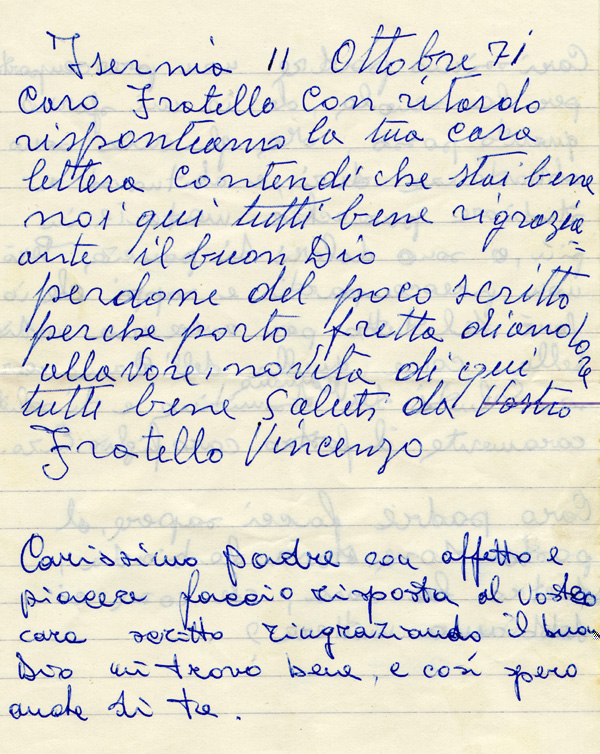 Isernia 11 Ottobre 71
Caro Fratello con ritardo
rispontiamo la tua cara
lettera contendi che stai bene
noi qui tutti bene rigrazia=
ante il buon Dio
perdone del poco scritto
perche porto fretta di andare
alla vore, novita di qui
tutti bene Saluti da Vostro
Fratello Vincenzo
Carissimo padre con affetto e
piacere faccio risposta al vostro
cara scritto ringraziando il buon
Dio mi trovo bene, e così spero
anche di te.